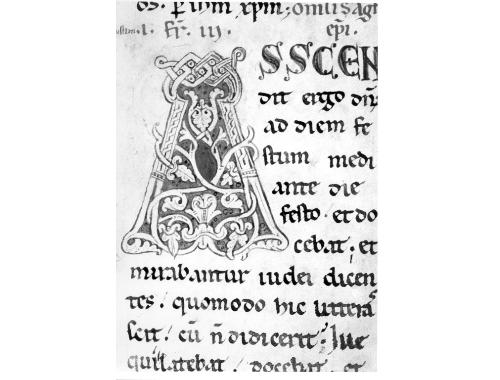 os. p ihm xpm, omnis agr
l. fr. iii. epi.
ASSCEN
dit ergo dns
ad diem fe
stum medi
ante die
festo. et do
cebat. et
mirabantur iudei dicen
tes. quomodo hic litteras
scit. cu n didicerit. Ihe
latebat. docebat. et